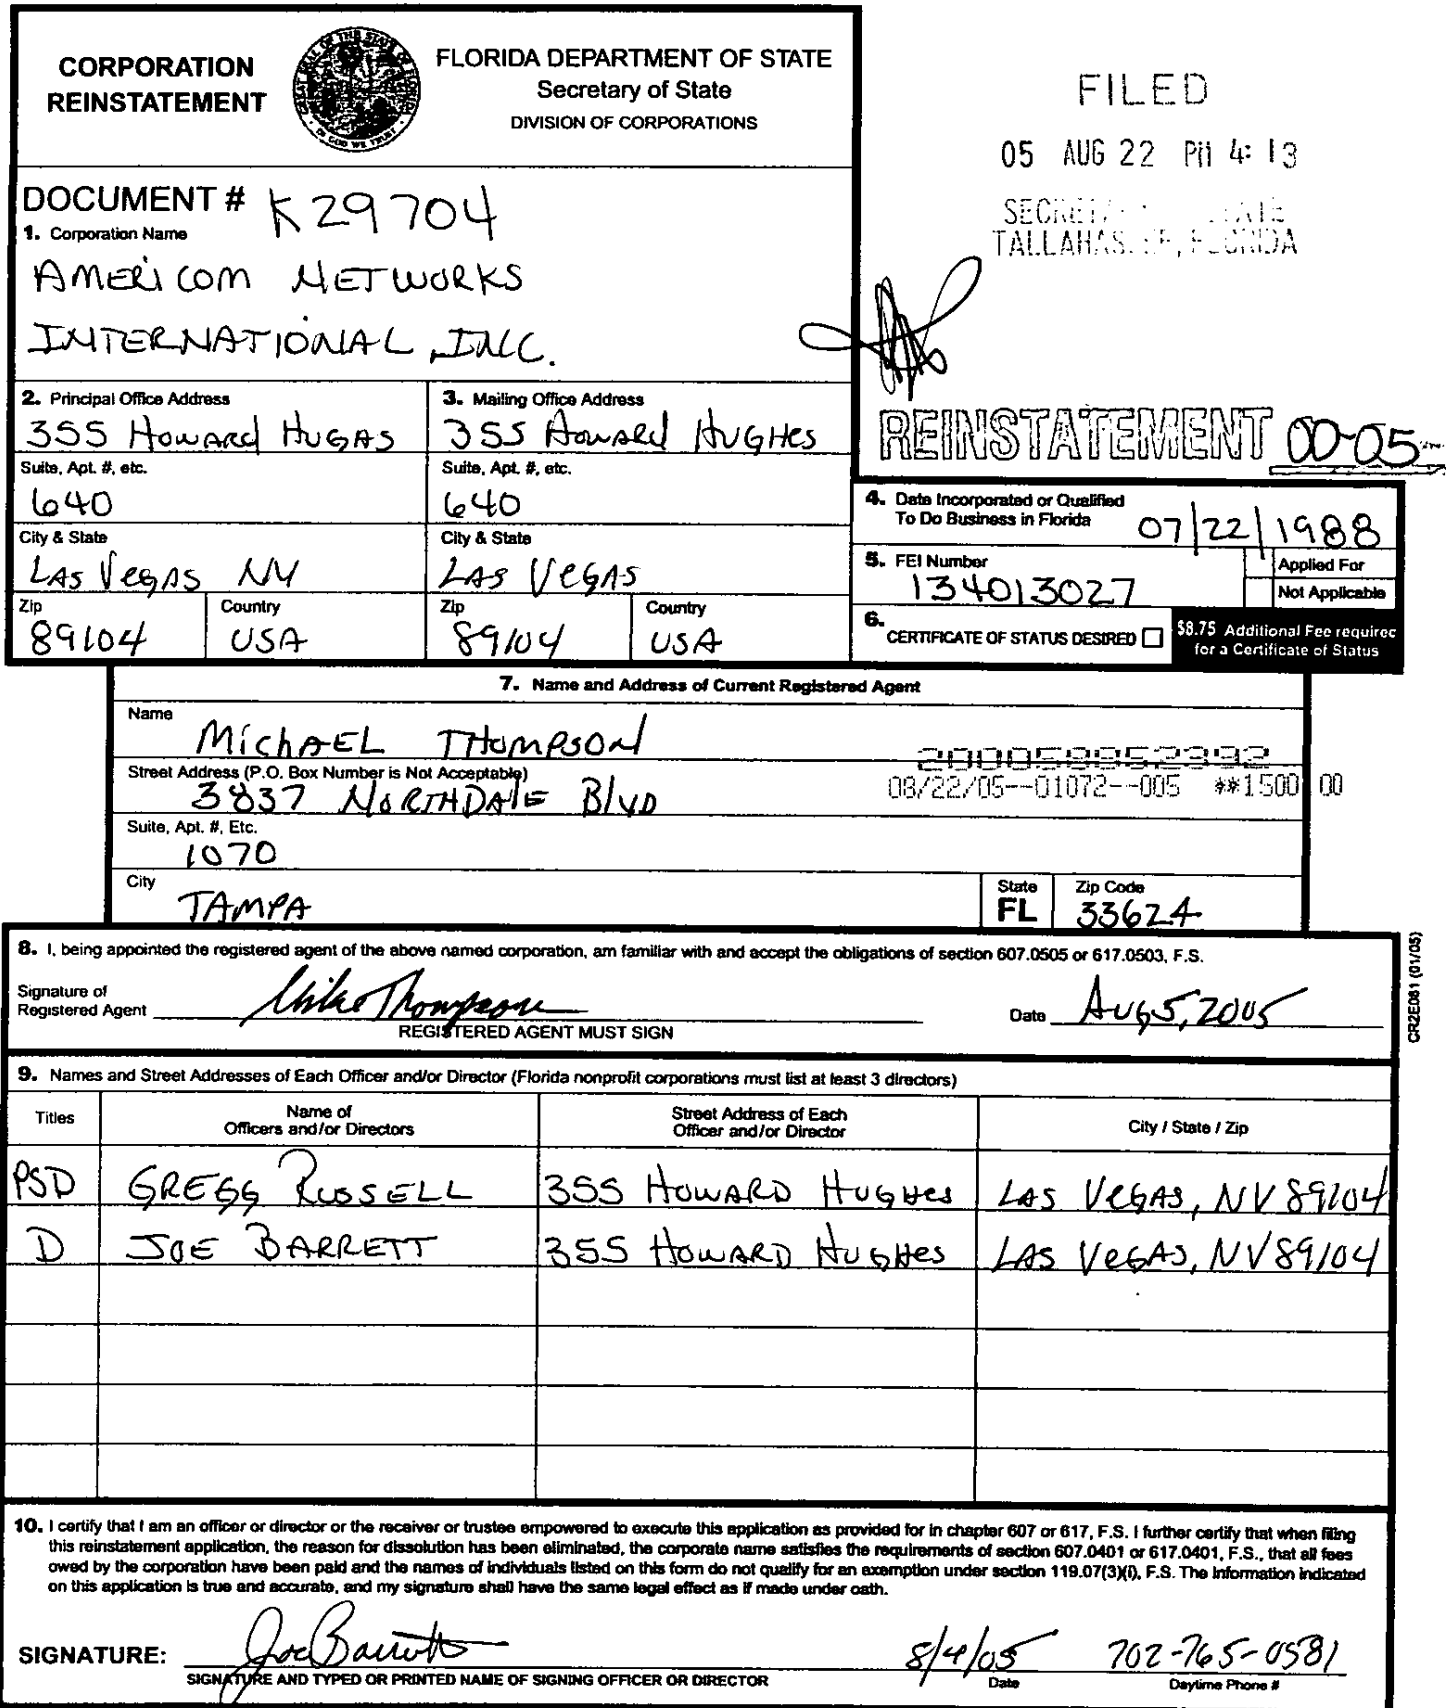 CORPORATION
REINSTATEMENT
FLORIDA DEPARTMENT OF STATE
Secretary of State
DIVISION OF CORPORATIONS
FILED
05 AUG 22 PM 4: 13
TALLAHAS FLORIDA
DOCUMENT # K29704
1. Corporation Name
AMERICOM NETWORKS
INTERNATIONAL, INC.
REINSTATEMENT 00-05
2. Principal Office Address
355 HOWARD HUGAS
Suite, Apt. #, etc.
640
City & State
LAS VEGAS NV
Zip
89104
Country
USA
3. Mailing Office Address
355 HOWARD HUGHES
Suite, Apt. #, etc.
640
City & State
LAS VEGAS
Zip
89104
Country
USA
4. Date Incorporated or Qualified
To Do Business in Florida 07/22/1988
5. FEI Number
134013027
Applied For
Not Applicable
6. CERTIFICATE OF STATUS DESIRED
$8.75 Additional Fee required
for a Certificate of Status
7. Name and Address of Current Registered Agent
Name
MICHAEL THOMPSON
Street Address (P.O. Box Number is Not Acceptable)
3837 NORTHDALE BLVD
08/22/05--01072--005 **1500 00
Suite, Apt. #, Etc.
1070
City
TAMPA
State
FL
Zip Code
33624
8. I, being appointed the registered agent of the above named corporation, am familiar with and accept the obligations of section 607.0505 or 617.0503, F.S.
Signature of
Registered Agent Mike Thompson
REGISTERED AGENT MUST SIGN
Date Aug 5, 2005
CR2E081 (01/05)
9. Names and Street Addresses of Each Officer and/or Director (Florida nonprofit corporations must list at least 3 directors)
Titles
Name of
Officers and/or Directors
Street Address of Each
Officer and/or Director
City / State / Zip
PSD GREGG RUSSELL 355 HOWARD HUGHES LAS VEGAS, NV 89104
D JOE BARRETT 355 HOWARD HUGHES LAS VEGAS, NV 89104
10. I certify that I am an officer or director or the receiver or trustee empowered to execute this application as provided for in chapter 607 or 617, F.S. I further certify that when filing
this reinstatement application, the reason for dissolution has been eliminated, the corporate name satisfies the requirements of section 607.0401 or 617.0401, F.S., that all fees
owed by the corporation have been paid and the names of individuals listed on this form do not qualify for an exemption under section 119.07(3)(i), F.S. The information indicated
on this application is true and accurate, and my signature shall have the same legal effect as if made under oath.
SIGNATURE: Joe Barrett 8/4/05 702-765-0581
SIGNATURE AND TYPED OR PRINTED NAME OF SIGNING OFFICER OR DIRECTOR
Date
Daytime Phone #